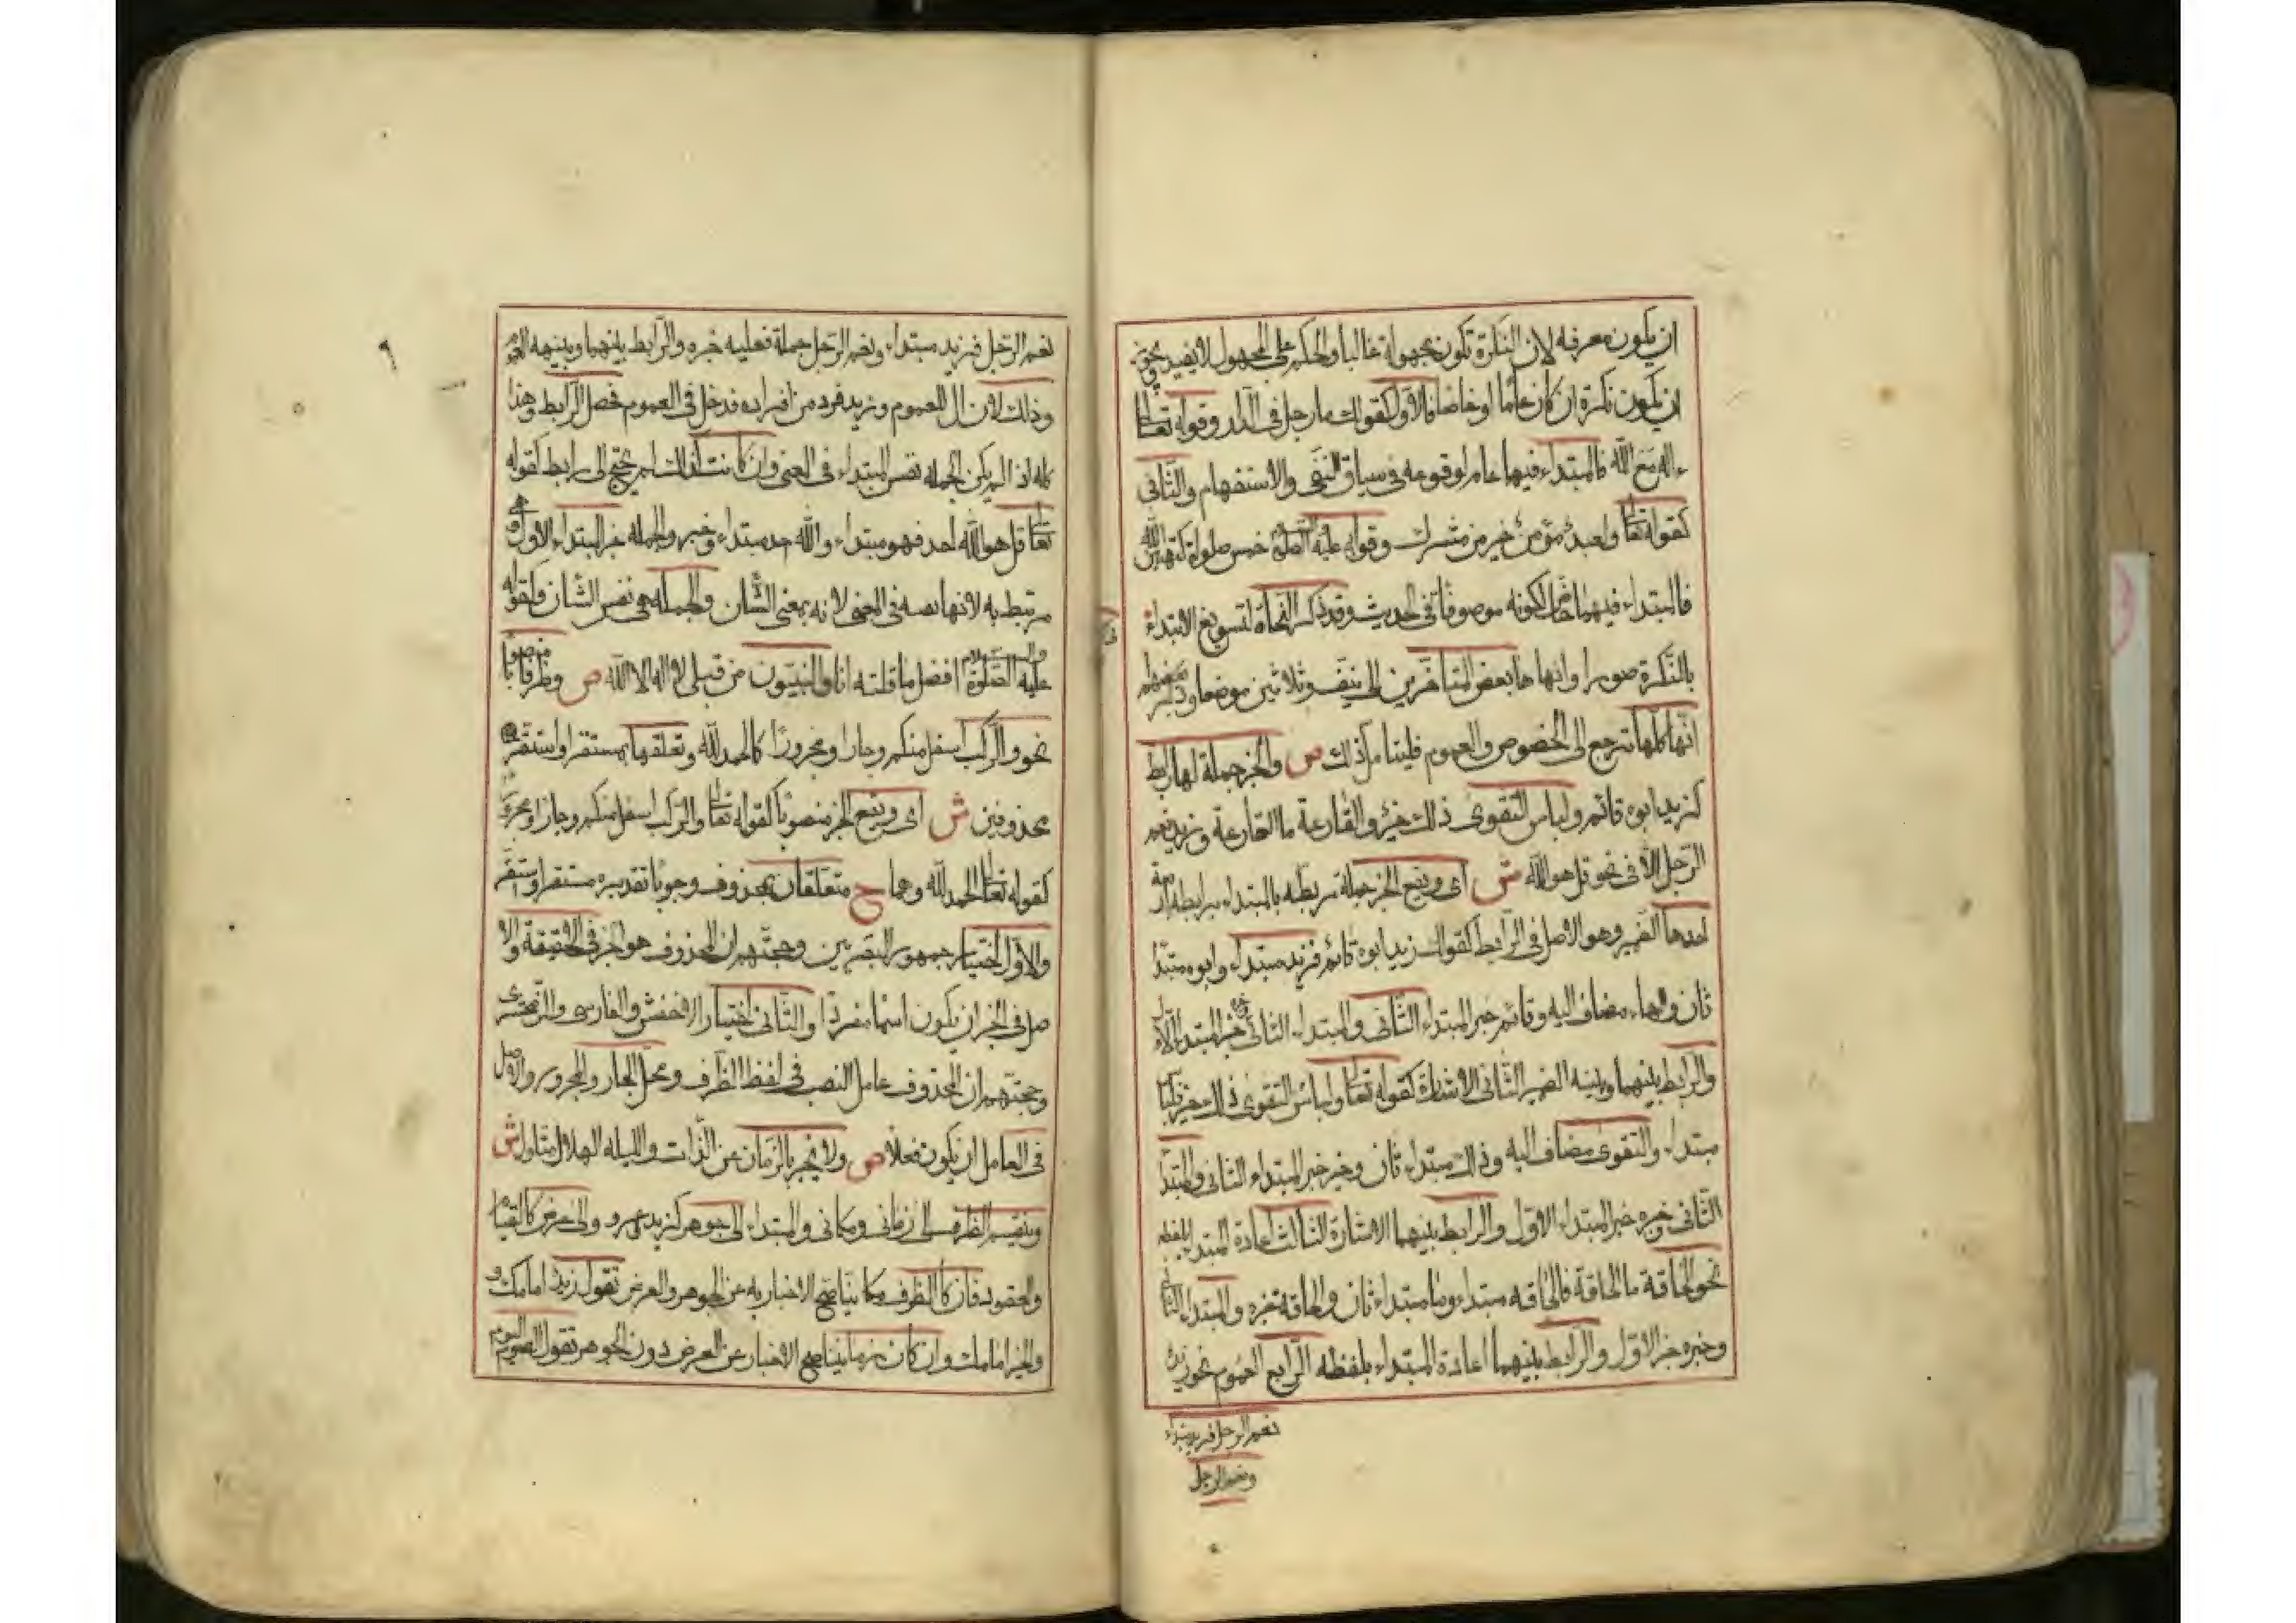 ان يكون معرفه لان النكرة تكون مجهولة غالبا والحكم على المجهول لا يفيد ويجوز
ان يكون نكرة ان كان عامًا او خاصًا فالاول كقولك ما رجل في الدار وقوله تعالى
ءاله مع الله فالمبتداء فيها عام لوقوعه في سياق النفي والاستفهام والثاني
كقوله تعا ولعبد مؤمن خير من مشرك وقوله عليه الصلوة خمس صلوات كتبهن الله
فالمبتداء فيهما خاص لكونه موصوفًا في الحديث وقد ذكر النحاة لتسويغ الابتداء
بالنكرة صورا وانهاها بعض المتاخرين الى نيف وثلاثين موضعا وذكر بعضهم
انها كلها ترجع الى الخصوص والعموم فليتامل ذلك ص والخبر جملة لها رابط
كزيد ابوه قائم ولباس التقوى ذلك خير والقارعة ما القارعة وزيد نعم
الرجل الا في نحو قل هو الله ش اى ويقع الخبر جملة مربطه بالمبتداء برابطه اربعة
احدها الضمير وهو الاصل في الرابط كقولك زيد ابوه قائم فزيد مبتداء وابوه مبتدا
ثان والهاء مضاف اليه وقائم خبر المبتداء الثاني والمبتداء الثاني وخبره خبر المبتداء الاول
والرابط بينهما وبينه الضمير الثاني الاشارة كقوله تعا ولباس التقوى ذلك خير فلباس
مبتداء والتقوى مضاف اليه وذلك مبتداء ثان وخير خبر المبتداء الثاني والمبتدا
الثاني وخبره خبر المبتداء الاول والرابط بينهما الاشارة الثالث اعادة المبتدا بلفظه
نحو الحاقة ما الحاقة فالحاقه مبتداء وما مبتداء ثان والحاقة خبره والمبتداء الثاني
وخبره خبر الاول والرابط بينهما اعادة المبتداء بلفظه الرابع العموم نحو زيد
نعم الرجل فزيد مبتداء
ونعم الرجل
نعم الرجل فزيد مبتداء ونعم الرجل جملة فعليه خبره والرابط بينهما وبينه العموم
وذلك لان ال للعموم وزيد فرد من افراده فدخل في العموم فحصل الرابط وهذا
كله اذا لم يكن الجمله نفس المبتداء في المعنى وان كانت كذلك لم يحتج الى رابط كقوله
تعا قل هو الله احد فهو مبتداء والله احد مبتداء وخبر والجمله خبر المبتداء الاول وهي
مرتبط به لانها نفسه في المعنى لانه بمعنى الشان والجمله هي نفس الشان وكقوله
عليه الصلوة والسلام افضل ما قلته انا والنبيون من قبلي لا اله الا الله ص وظرفا منصوبا
نحو والركب اسفل منكم وجارا ومجرورًا كالحمد لله وتعلقهما بمستقر او استقر
محذوفين ش اى ويقع الخبر منصوبًا كقوله تعا والركب اسفل منكم وجارا ومجرورا
كقوله تعا الحمد لله وهما ح متعلقان بمحذوف وجوبًا تقديره مستقر او استقر
والاول اختيار جمهور البصريين وحجتهم ان المحذوف هو الخبر في الحقيقة والا
صل في الخبر ان يكون اسما مفردًا والثاني اختيار الاخفش والفارسي والزمخشرى
وحجتهم ان المحذوف عامل النصب في لفظ الظرف ومحل الجار والمجرور والاصل
في العامل ان يكون فعلًا ص ولا يخبر بالزمان عن الذات والليله الهلال متاول ش
وينقسم الظرف الى زماني ومكاني والمبتداء الى جوهر كزيد وعمرو والى عرض كالقيام
والعقود فان كان الظرف مكانيًا صح الاخبار به عن الجوهر والعرض تقول زيد امامك و
والخير امامك وان كان زمانيًا صح الاخبار عن العرض دون الجوهر تقول الصوم اليوم